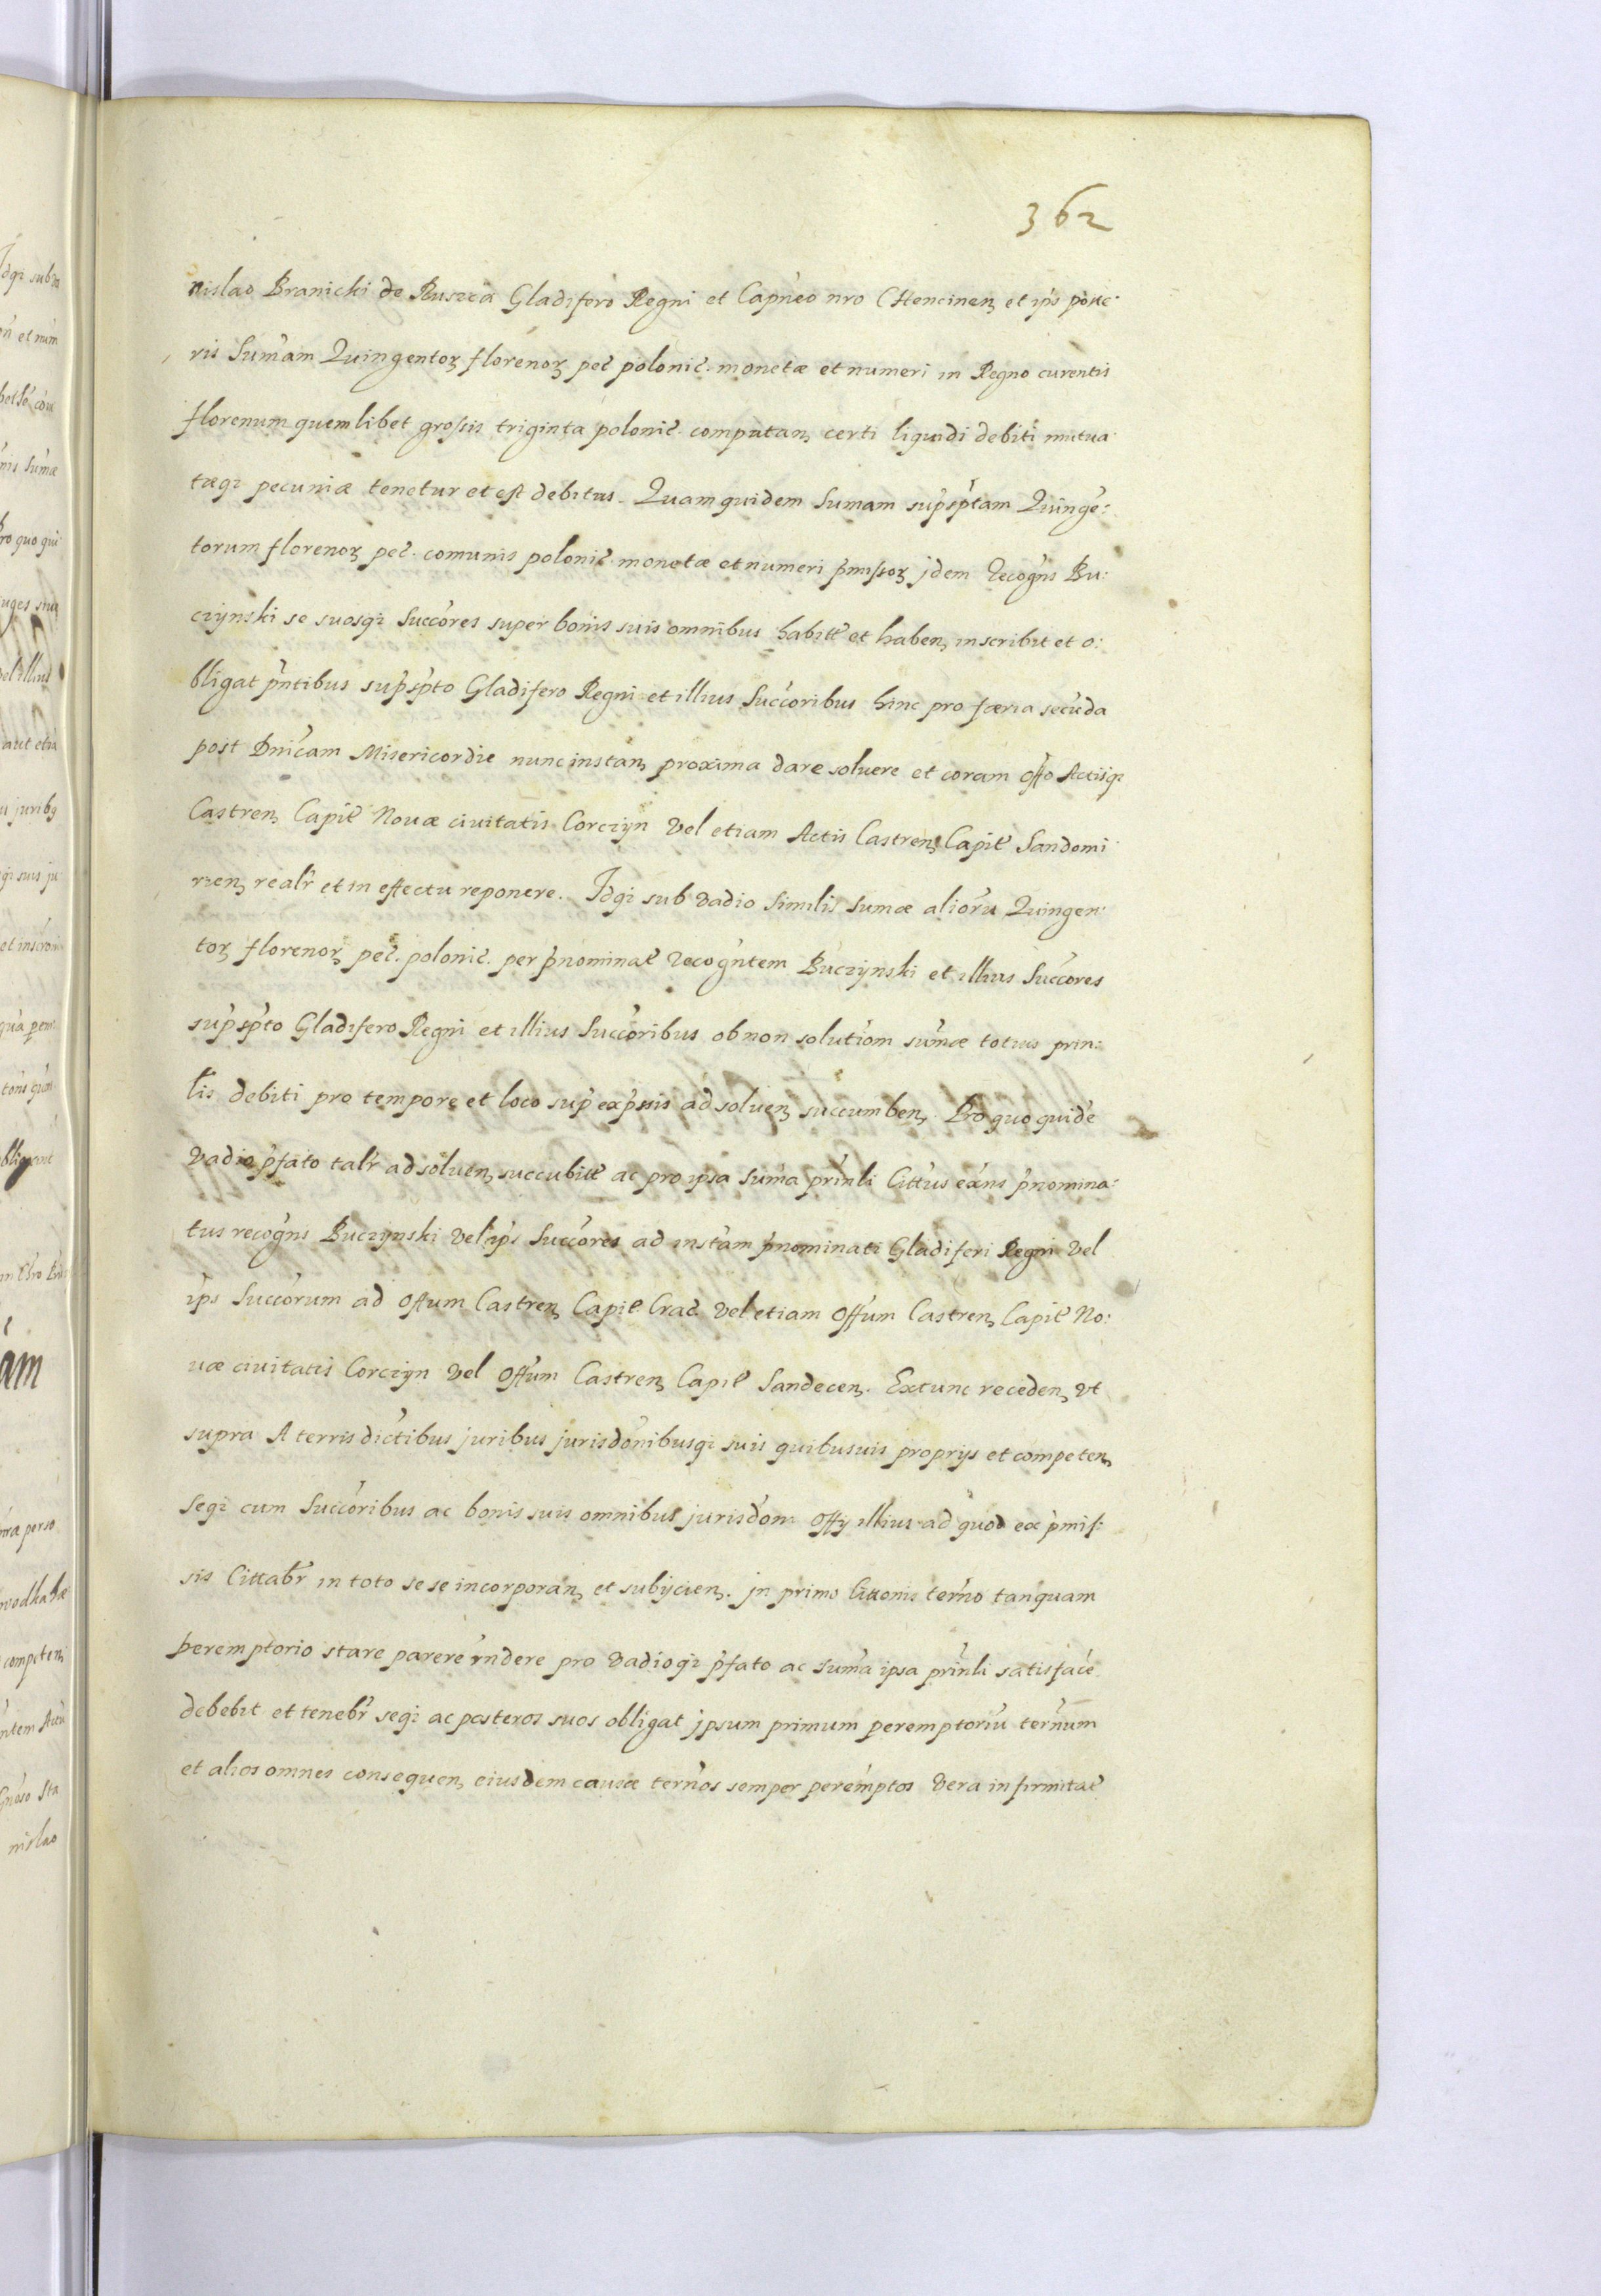 362
nislao Branicki de Ruszcza Gladifero Regni et Capneo nro CHencinen et ips poste:
ris Sumam Quingentor florenor pec polonic. monetæ et numeri in Regno curentis
florenum quemlibet grossis triginta polonic. computan certi liquidi debiti mutua
tæqz pecuniæ tenetur et est debitus. Quam quidem Sumam supsptam Quinge:
torum florenor pec. comunis polonic. monetæ et numeri pmissor jdem Recogns Bu:
czÿnski se suosqz Succores super bonis suis omnibus habitt et haben inscribit et o:
bligat pntibus supspto Gladifero Regni et illius Succoribus hinc pro færia secuda
post Dnicam Misericordie nunc instan proxima dare soluere et coram offo Actisqz
Castren Capit Nouæ ciuitatis Corczÿn Vel etiam Actis Castren Capit Sandomi
rien realr et in effectu reponere. Idqz sub vadio similis sumæ alioru Quingen:
tor florenor pec. polonic. per pnominat Recogntem Buczÿnski et illius Succores
supspto Gladifero Regni et illius Succoribus ob non solutiom sumæ totius prin:
lis debiti pro tempore et loco sup expssis ad soluen succumben. Pro quo quide
Vadio pfato talr ad soluen succubitt ac pro ipsa Suma prinli Cittus exns pnomina:
tus recogns Buczÿnski vel ips Succores ad instam pnominati Gladiferi Regni vel
ips Succorum ad Offum Castren Capit Crac. Vel etiam Offum Castren Capit No:
uæ ciuitatis Corczÿn vel Offum Castren Capit Sandecen. Extunc receden vt
supra A terris dictibus juribus jurisdonibusqz suis quibusuis proprijs et competen
Seqz cum Succoribus ac bonis suis omnibus jurisdom Offÿ illius ad quod ex pmis:
sis Cittabr in toto se se incorporan et subijcien. jn primo Cittonis termo tanquam
peremptorio stare parere rndere pro Vadioqz pfato ac suma ipsa prinli satisface
debebit et tenebr seqz ac posteros suos obligat jpsum primum peremptoriu ternum
et alios omnes consequen eiusdem causæ ternos semper peremptos Vera infirmitat